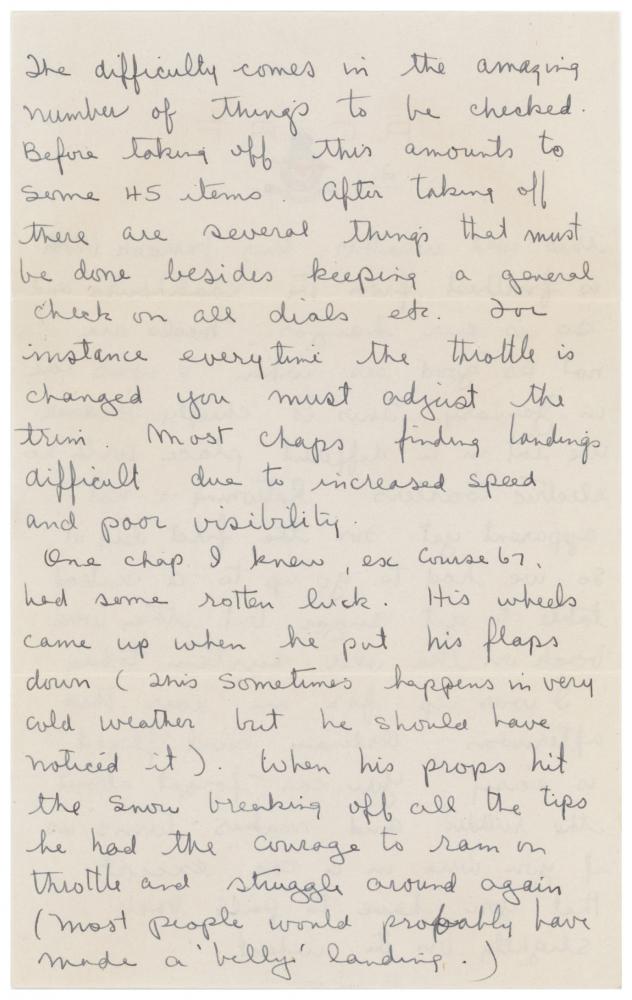 The difficulty comes in the amazing
number of things to be checked.
Before taking off this amounts to
some 45 items. After taking off
there are several things that must
be done besides keeping a general
check on all dials etc. For
instance everytime the throttle is
changed you must adjust the
trim. Most chaps finding landings
difficult due to increased speed
and poor visibility.
One chap I knew, ex Course 67,
had some rotten luck. His wheels
came up when he put his flaps
down (this sometimes happens in very
cold weather but he should have
noticed it). When his props hit
the snow breaking off all the tips
he had the courage to ram on
throttle and struggle around again
(most people would probably have
made a 'belly' landing.)